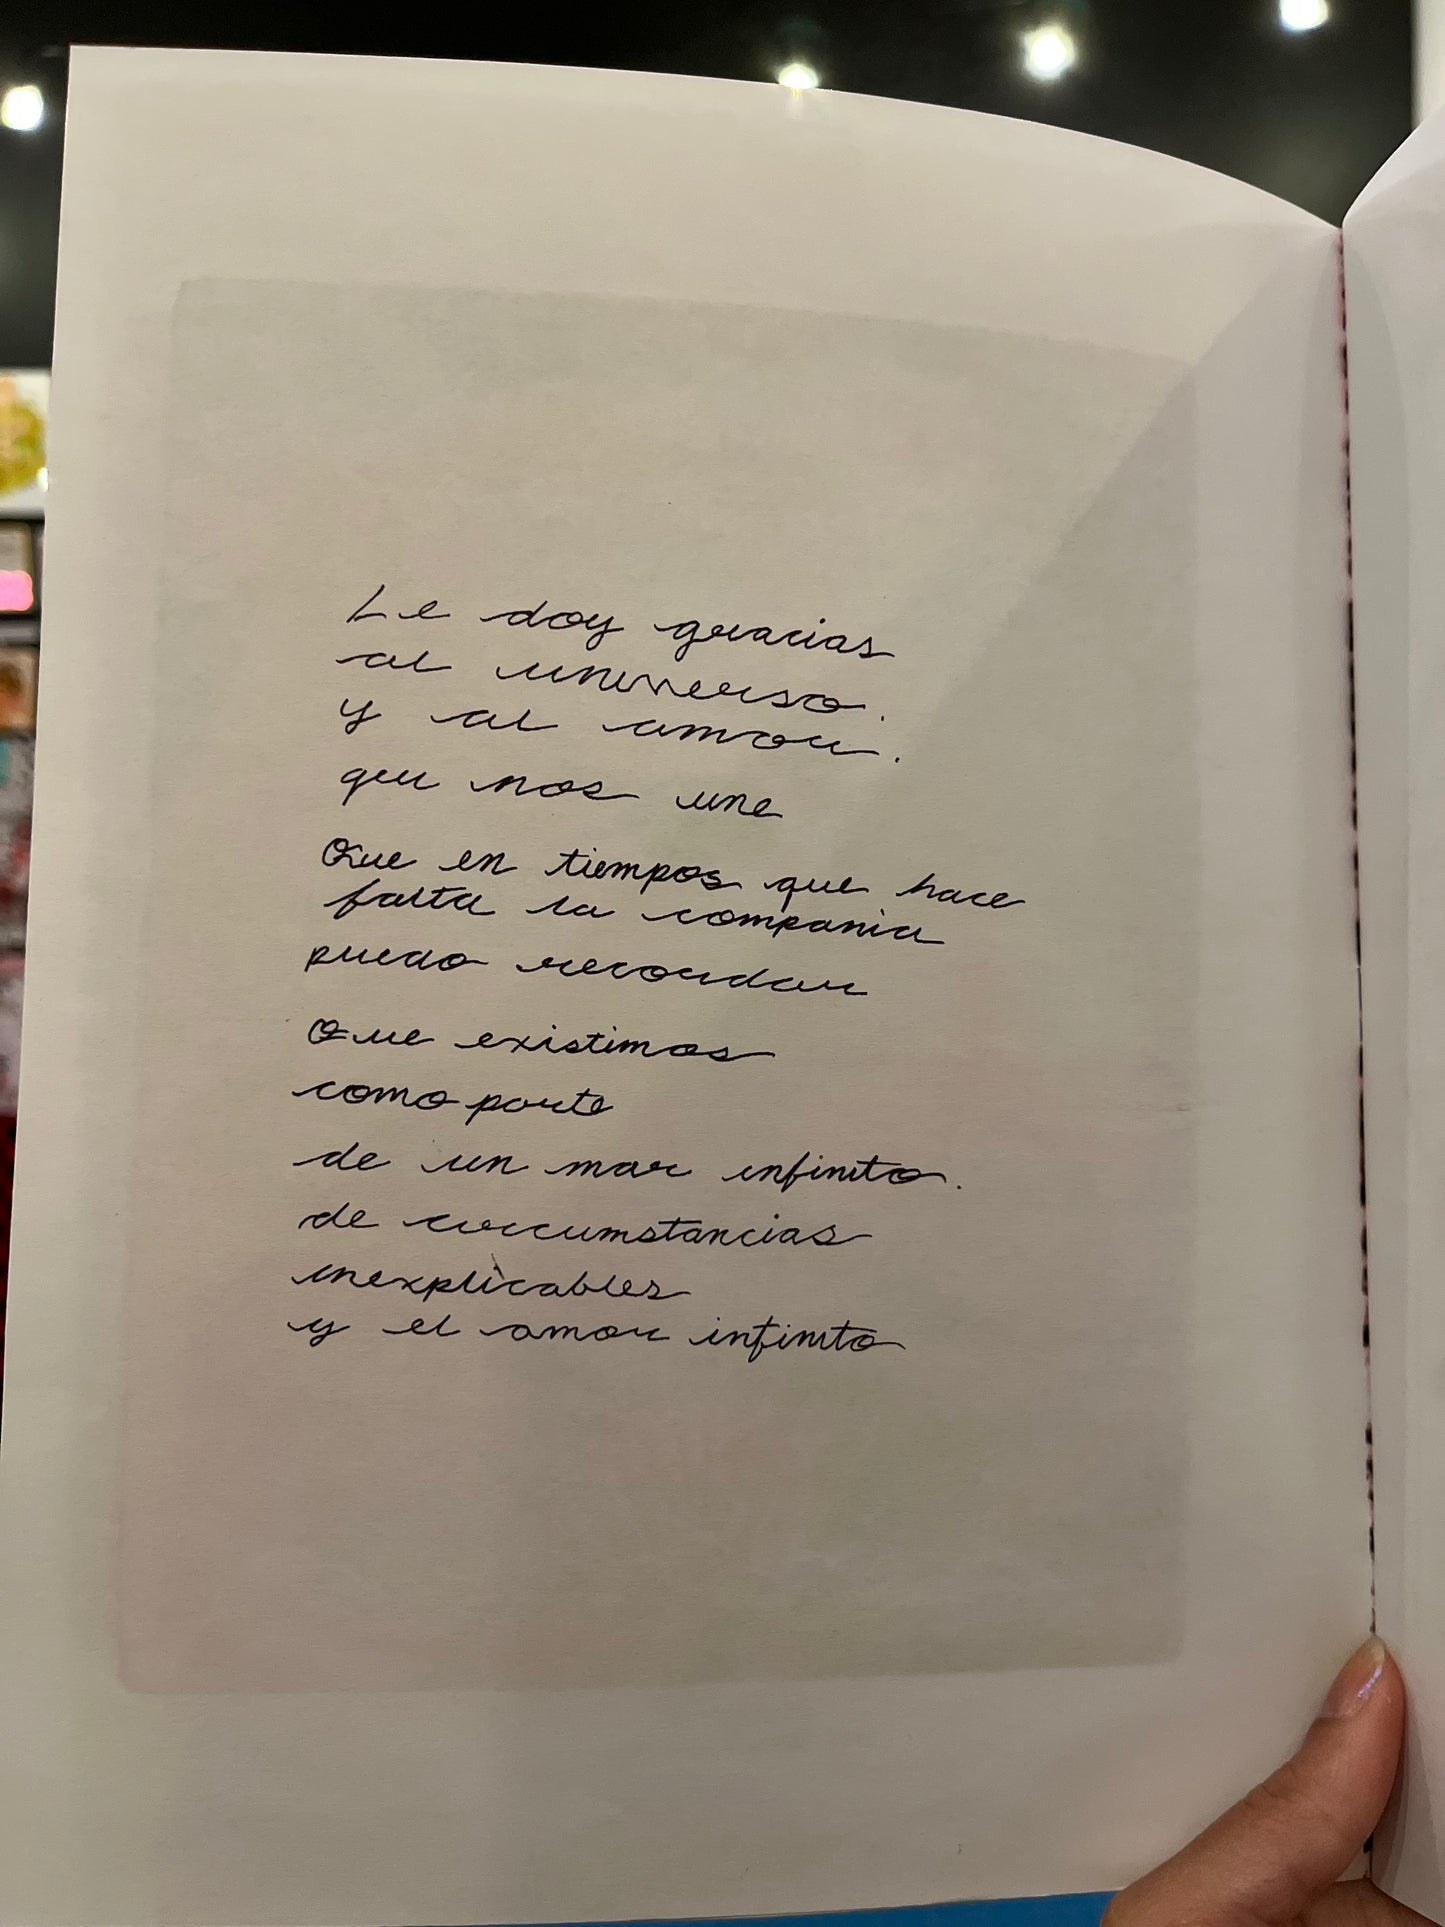 Le doy gracias
al universo.
y al amor.
que nos une
Que en tiempos que hace
falta la compania
puedo recordar
Que existimos
como parte
de un mar infinito.
de circumstancias
inexplicables
y el amor infinito